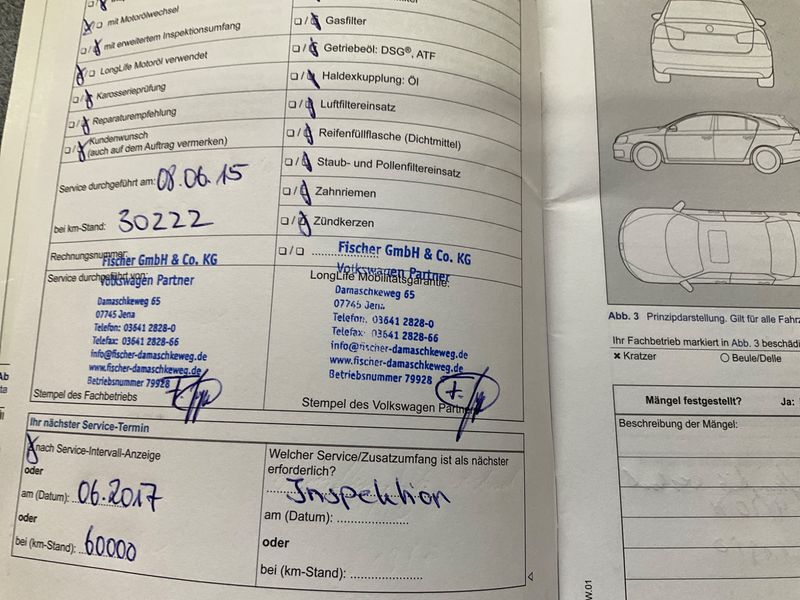 mit Motorölwechsel
mit erweitertem Inspektionsumfang
LongLife Motoröl verwendet
Karosserieprüfung
Reparaturempfehlung
Kundenwunsch
(auch auf dem Auftrag vermerken)
Service durchgeführt am: 08.06.15
bei km-Stand: 30222
Rechnungsnummer:
Fischer GmbH & Co. KG
Service durchgeführt von:
Volkswagen Partner
Damaschkeweg 65
07745 Jena
Telefon: 03641 2828-0
Telefax: 03641 2828-66
info@fischer-damaschkeweg.de
www.fischer-damaschkeweg.de
Betriebsnummer 79928
Stempel des Fachbetriebs
Gasfilter
Getriebeöl: DSG®, ATF
Haldexkupplung: Öl
Luftfiltereinsatz
Reifenfüllflasche (Dichtmittel)
Staub- und Pollenfiltereinsatz
Zahnriemen
Zündkerzen
Fischer GmbH & Co. KG
Volkswagen Partner
LongLife Mobilitätsgarantie:
Damaschkeweg 65
07745 Jena
Telefon: 03641 2828-0
Telefax: 03641 2828-66
info@fischer-damaschkeweg.de
www.fischer-damaschkeweg.de
Betriebsnummer 79928
Stempel des Volkswagen Partners
Ihr nächster Service-Termin
nach Service-Intervall-Anzeige
oder
am (Datum): 06.2017
oder
bei (km-Stand): 60000
Welcher Service/Zusatzumfang ist als nächster
erforderlich?
Inspektion
am (Datum):
oder
bei (km-Stand):
Abb. 3 Prinzipdarstellung. Gilt für alle
Ihr Fachbetrieb markiert in Abb. 3
Kratzer
Beule/Delle
Mängel festgestellt? Ja:
Beschreibung der Mängel: